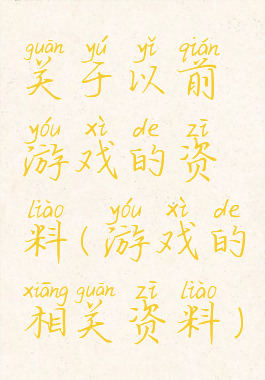 guān yú yǐ qián
关于以前
yóu xì de zī
游戏的资
liào yóu xì de
料(游戏的
xiāng guān zī liào
相关资料)